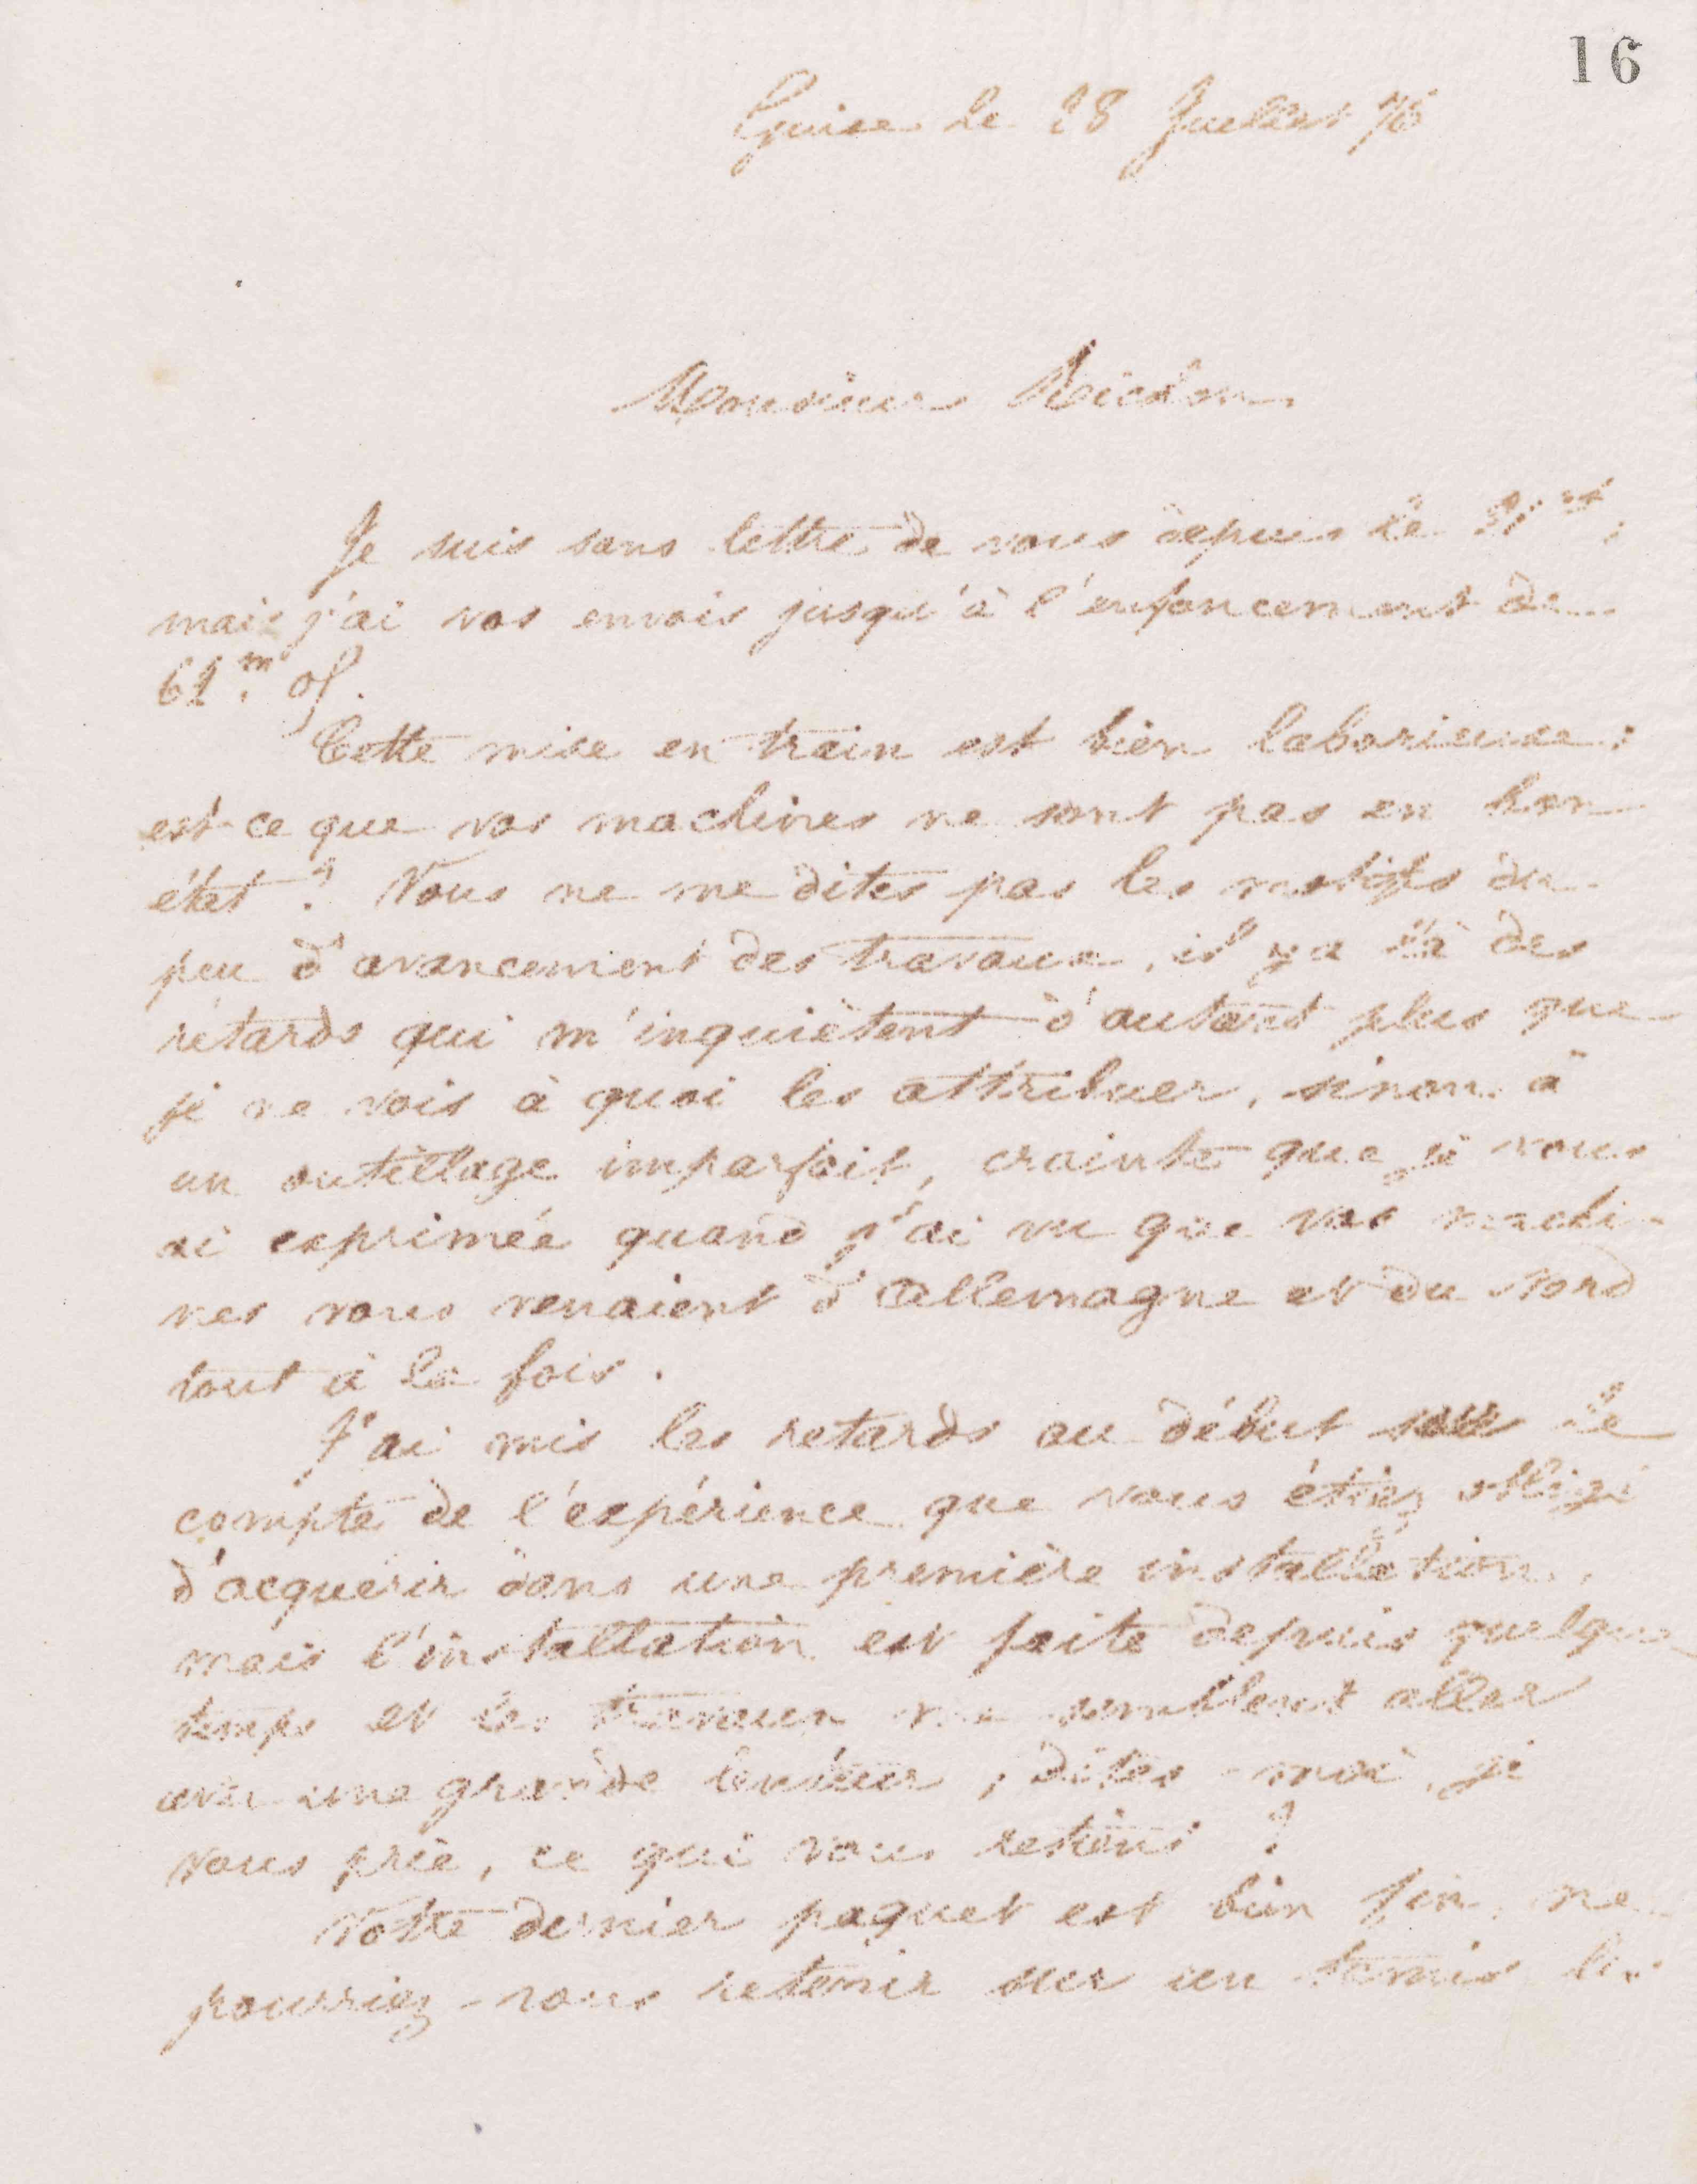 16
Guise le 28 Juillet 76
Monsieur
Je suis sans lettre de vous depuis le
mais j'ai vos envois jusqu'à l'enfoncement de
61.m of.
Cette mise en train est bien laborieuse ;
est-ce que vos machines ne sont pas en bon
état ? Vous ne me dites pas les motifs du
peu d'avancement des travaux, il y a là des
retards qui m'inquiètent d'autant plus que
je ne vois à quoi les attribuer, sinon à
un outillage imparfait, crainte que je vous
ai exprimée quand j'ai vu que vos machi-
nes vous venaient d'Allemagne et du Nord
tout à la fois.
J'ai mis les retards au début sur le
compte de l'expérience que vous étiez obligé
d'acquérir dans une première installation,
mais l'installation est faite depuis quelque
temps et les travaux me semblent aller
avec une grande lenteur ; dites-moi, je
vous prie, ce qui vous retient ?
Votre dernier paquet est bien fin, ne
pourriez-vous retenir sur un tamis les